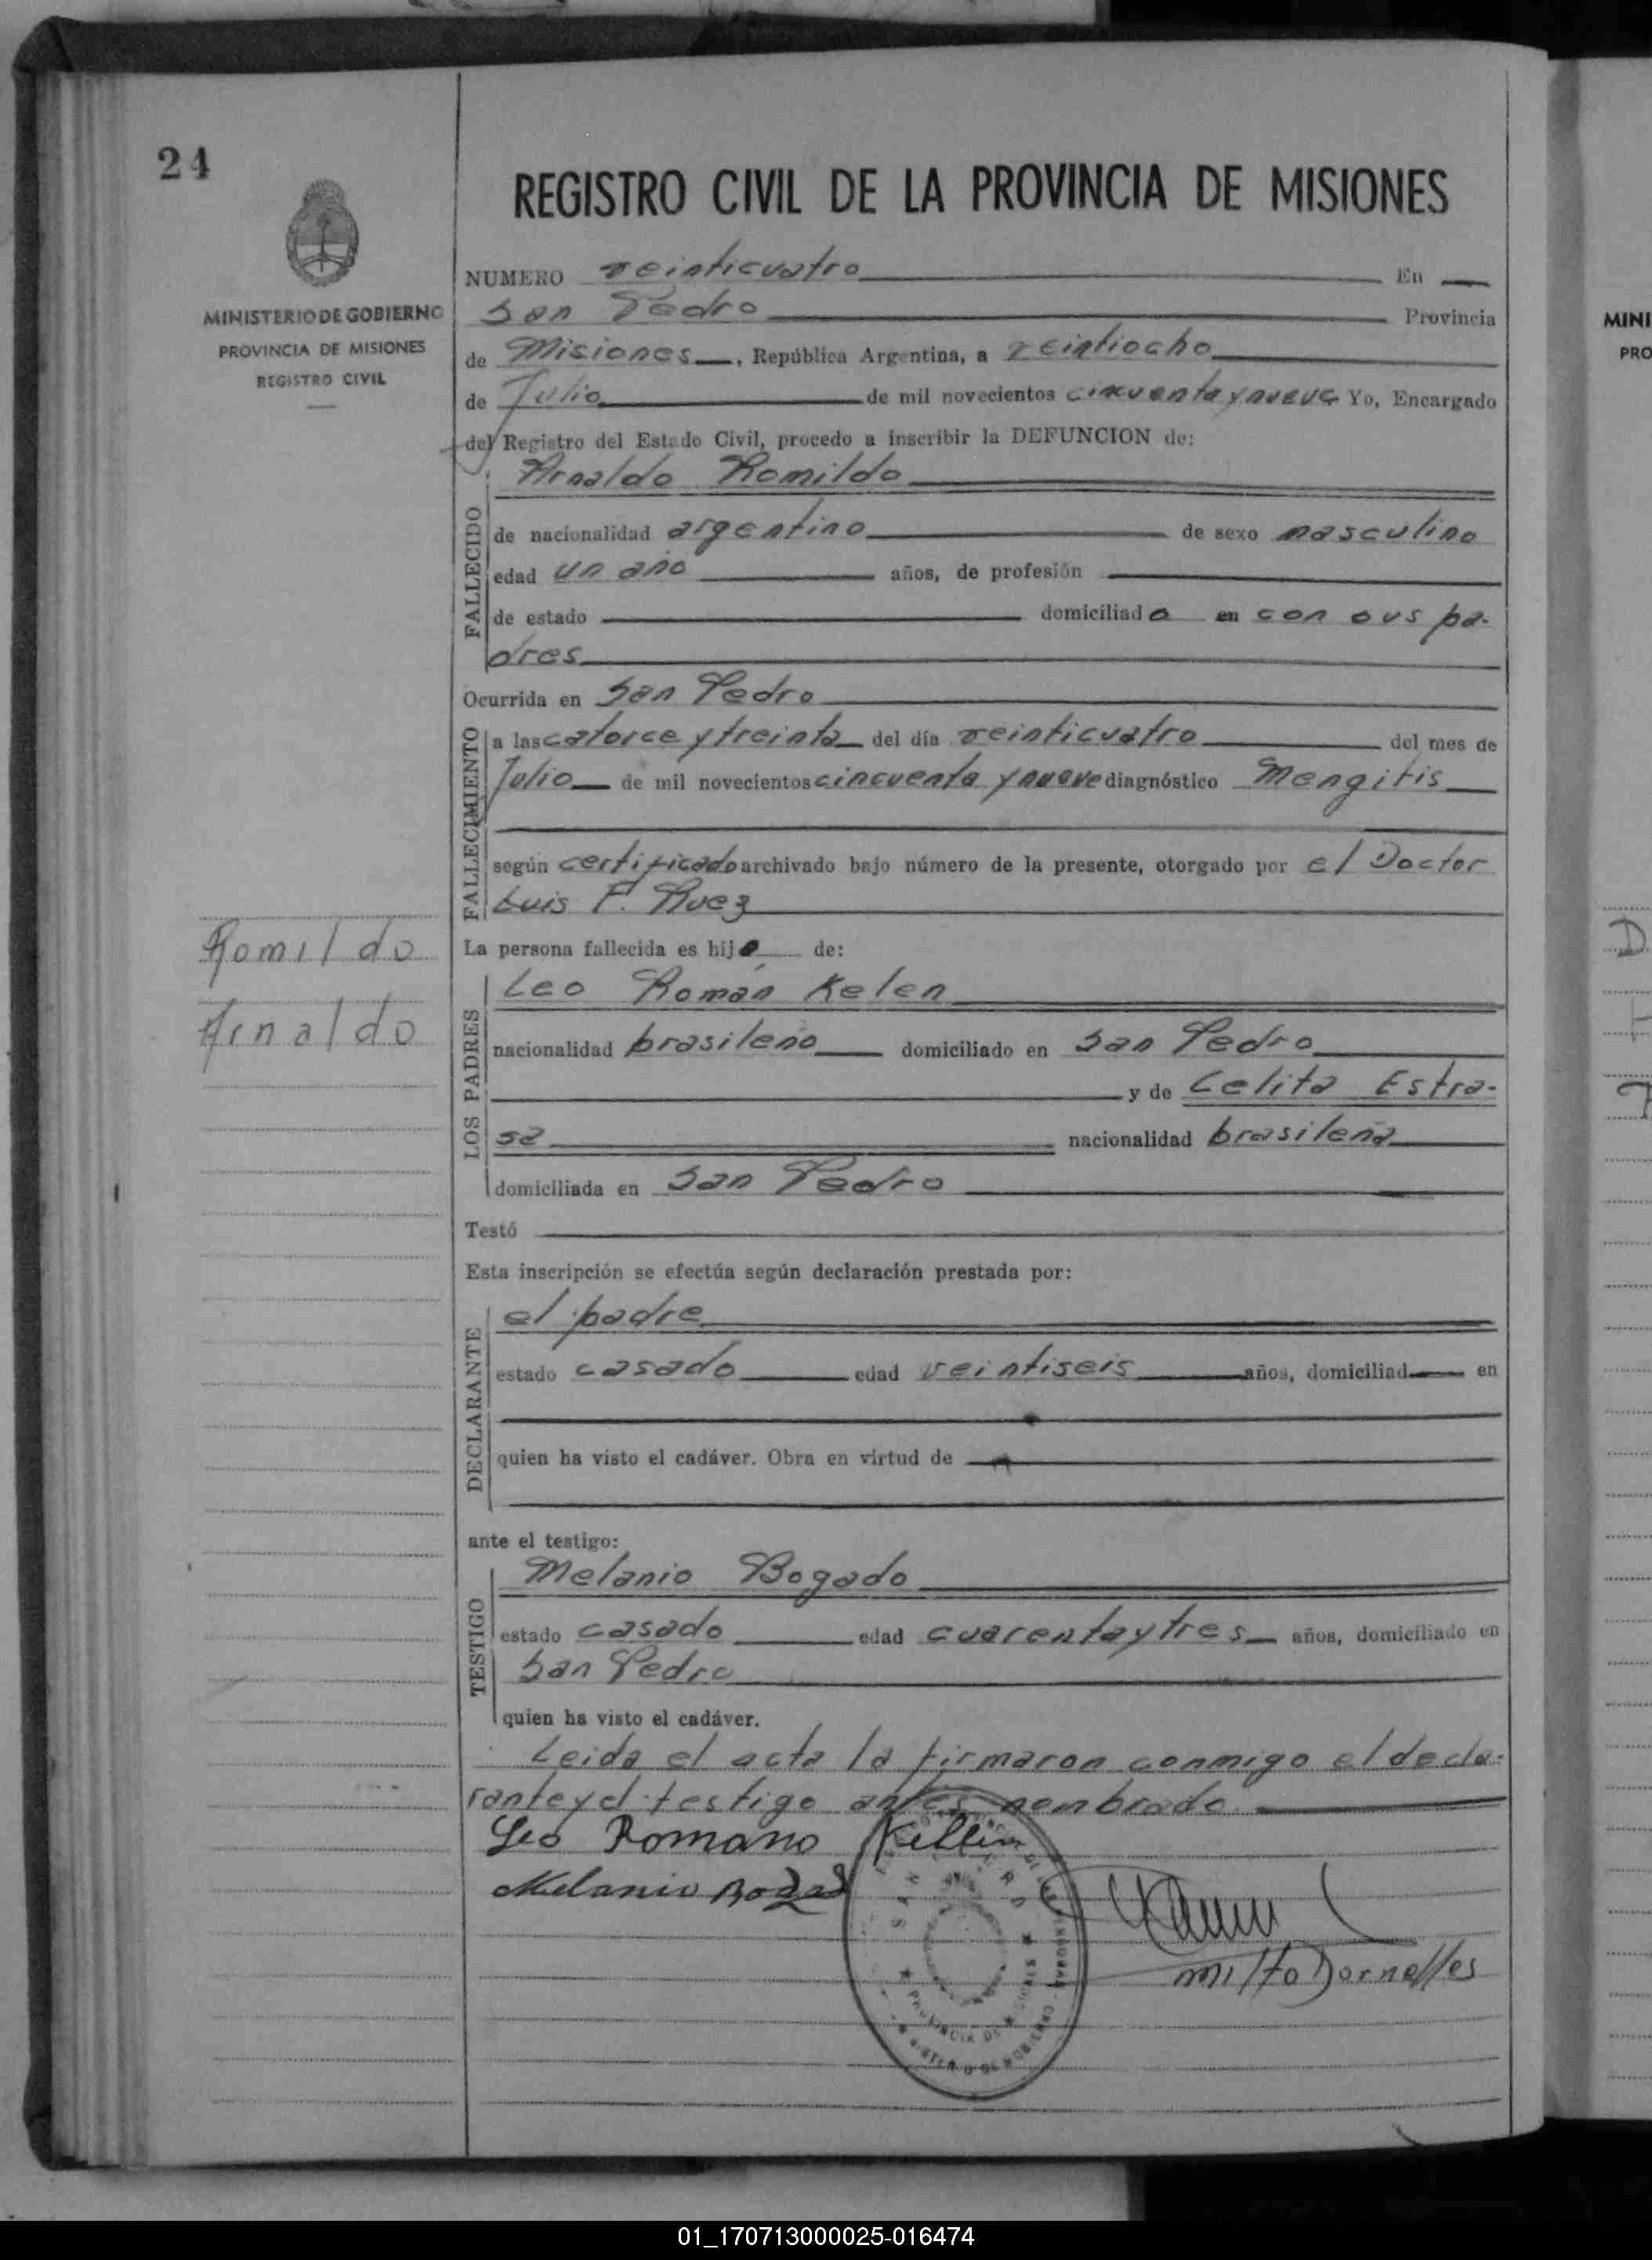 24
REGISTRO CIVIL DE LA PROVINCIA DE MISIONES
MINISTERIO DE GOBIERNO
PROVINCIA DE MISIONES
REGISTRO CIVIL
NUMERO veinticuatro En
San Pedro Provincia
de Misiones, República Argentina, a veintiocho
de Julio de mil novecientos cincuenta y nueve Yo, Encargado
del Registro del Estado Civil, procedo a inscribir la DEFUNCION de:
FALLECIDO
Arnaldo Romildo
de nacionalidad argentino de sexo masculino
edad un año años, de profesión
de estado domiciliado en con sus pa-
dres
Ocurrida en San Pedro
FALLECIMIENTO
a las catorce y treinta del día veinticuatro del mes de
Julio de mil novecientos cincuenta y nueve diagnóstico Mengitis
según certificado archivado bajo número de la presente, otorgado por el Doctor
Luis F. Ruez
Romildo
Arnaldo
La persona fallecida es hijo de:
LOS PADRES
Leo Román Kelen
nacionalidad brasileño domiciliado en San Pedro
y de Celita Estra-
sa nacionalidad brasileña
domiciliada en San Pedro
Testó
Esta inscripción se efectúa según declaración prestada por:
DECLARANTE
el padre
estado casado edad veintiseis años, domiciliad en
quien ha visto el cadáver. Obra en virtud de
ante el testigo:
TESTIGO
Melanio Bogado
estado casado edad cuarenta y tres años, domiciliado en
San Pedro
quien ha visto el cadáver.
Leida el acta la firmaron conmigo el decla-
rante y el testigo antes nombrado.
Leo Romano Kellen
Melanio Bogad
Milto Dornelles
SAN PEDRO
PROVINCIA DE MISIONES
MINISTERIO DE GOBIERNO
MINI
PRO
D
01_170713000025-016474